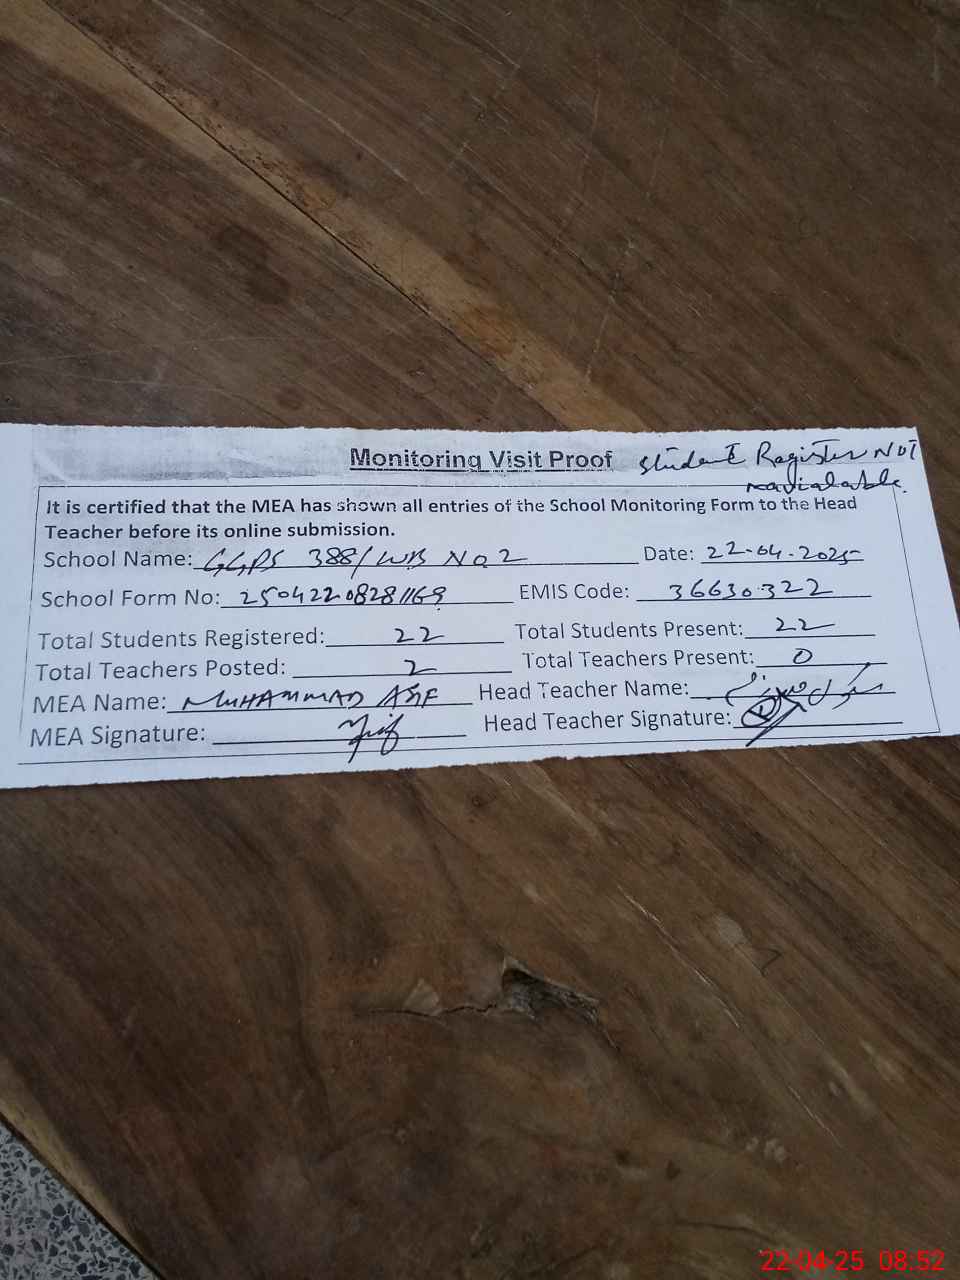 Monitoring Visit Proof Student Register NOT
It is certified that the MEA has shown all entries of the School Monitoring Form to the Head
Teacher before its online submission.
School Name: GGPS 388/WB No 2 Date: 22-04-2025
School Form No: 25042208281169 EMIS Code: 36630322
Total Students Registered: 22 Total Students Present: 22
Total Teachers Posted: 2 Total Teachers Present: 0
MEA Name: MUHAMMAD ASIF Head Teacher Name:
MEA Signature: Head Teacher Signature:
22-04-25 08:52